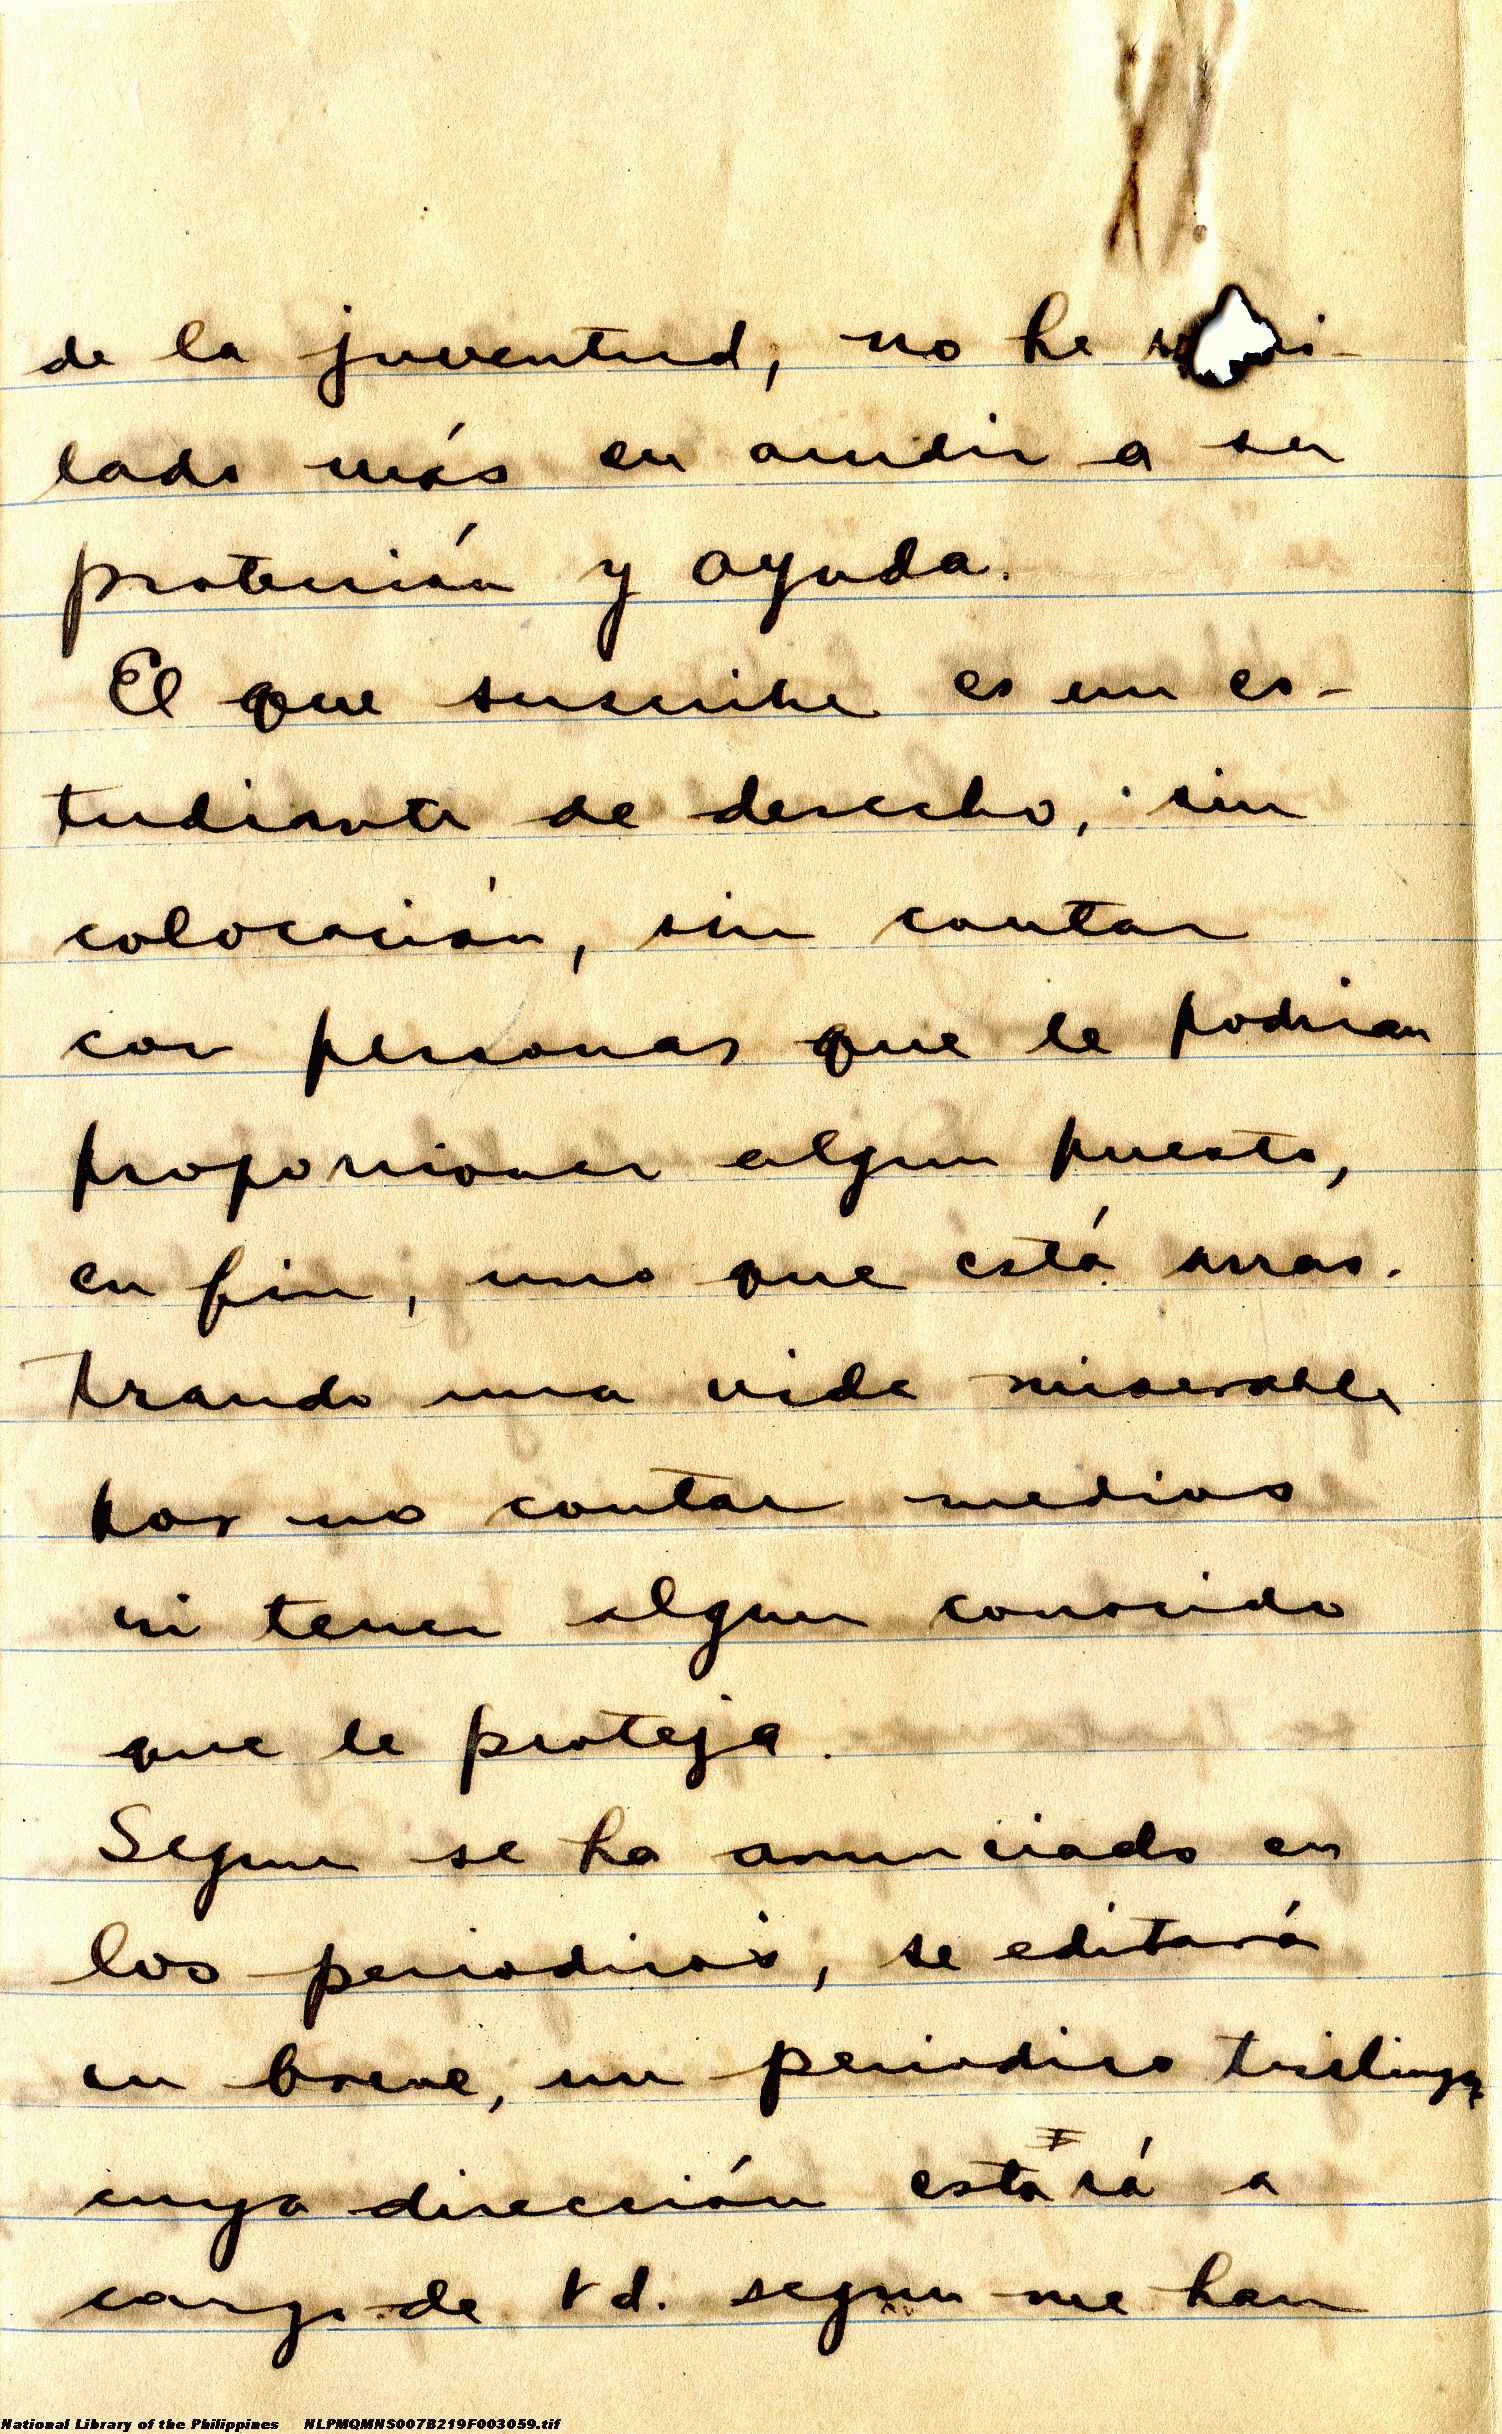 de la juventud, no he
lado más en acudir a su
protección y ayuda.
El que suscribe es un es-
tudiante de derecho, sin
colocación, sin contar
con personas que le podrian
proporcionar algun puesto,
en fin, uno que está arras-
trando una vida miserable
por no contar medios
ni tener algun conocido
que le proteja.
Segun se ha anunciado en
los periodicos, se editará
en breve, un periodico trilingue
cuya dirección estará a
cargo de Vd. segun me han
National Library of the Philippines NLPMQMNS007B219F003059.tif